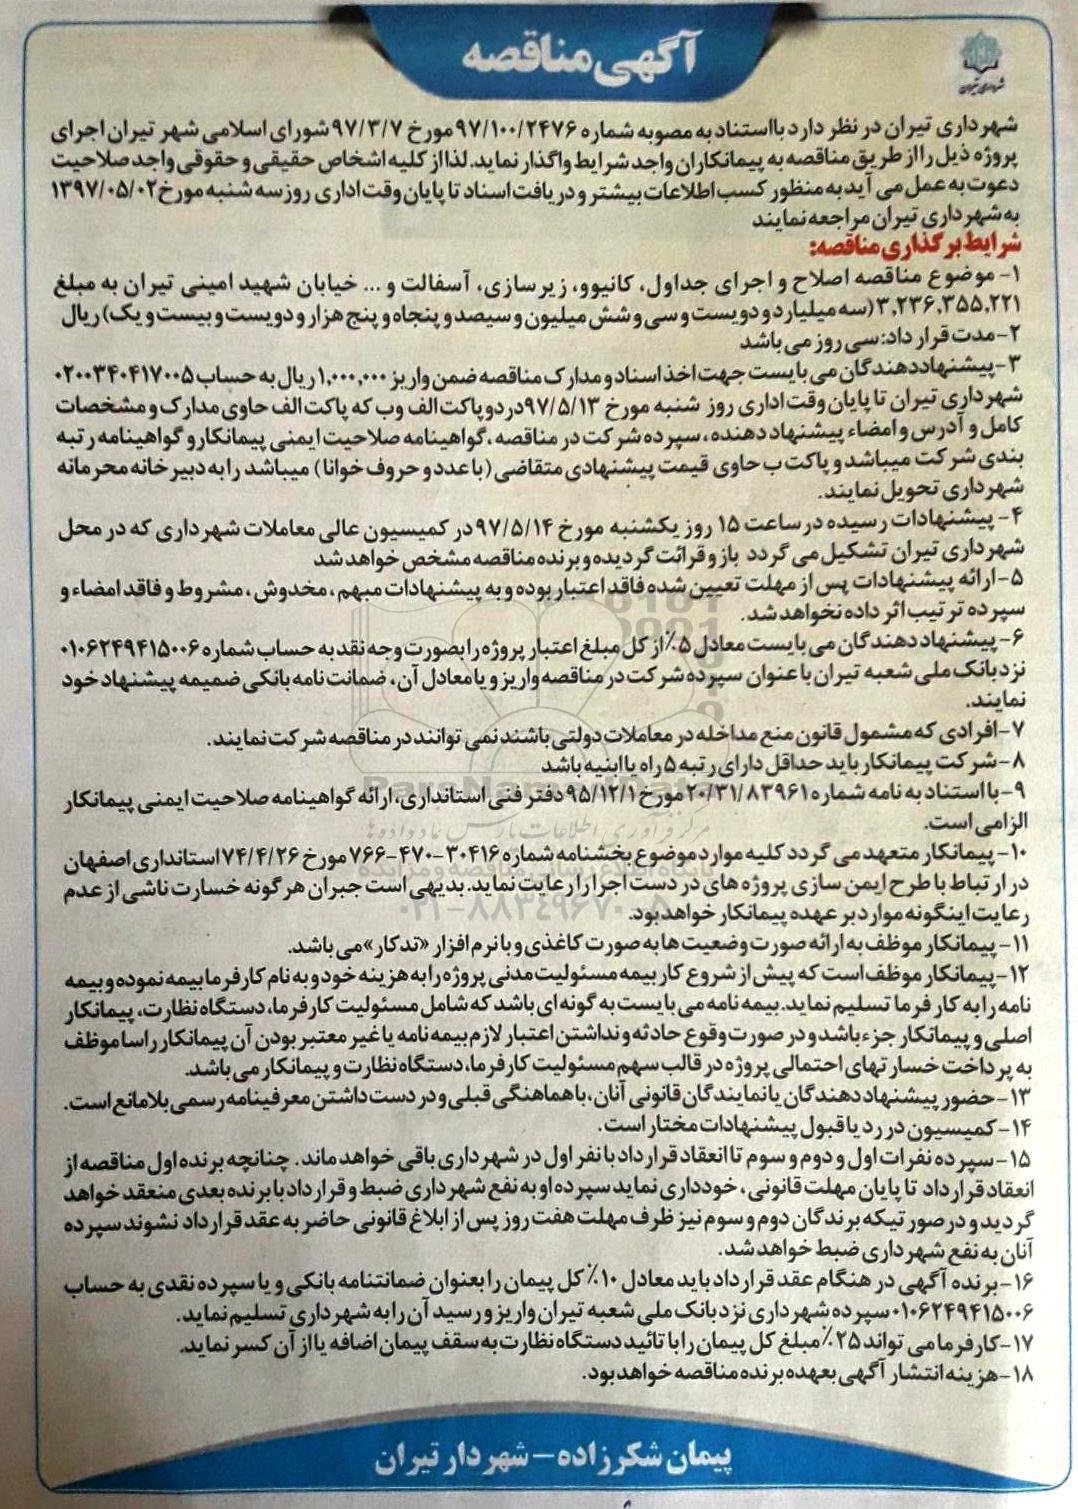 آگهی مناقصه
شهرداری تیران
شهرداری تیران در نظر دارد بااستناد به مصوبه شماره ۹۷/۱۰۰/۲۴۷۶مورخ ۹۷/۳/۷شورای اسلامی شهر تیران اجرای
پروژه ذیل رااز طریق مناقصه به پیمانکاران واجد شرایط واگذار نماید.لذااز کلیه اشخاص حقیقی و حقوقی واجد صلاحیت
دعوت به عمل می آید به منظور کسب اطلاعات بیشتر و دریافت اسناد تا پایان وقت اداری روز سه شنبه مورخ ۱۳۹۷/۰۵/۰۲
به شهرداری تیران مراجعه نمایند
شرایط برگذاری مناقصه:
۱- موضوع مناقصه اصلاح و اجرای جداول، کانیوو، زیرسازی، آسفالت و ... خیابان شهید امینی تیران به مبلغ
۳,۲۳۶,۳۵۵,۲۲۱(سه میلیارد و دویست و سی و شش میلیون و سیصد و پنجاه و پنج هزار و دویست و بیست و یک) ریال
۲-مدت قرار داد:سی روز می باشد
۳-پیشنهاددهندگان می بایست جهت اخذ اسناد و مدارک مناقصه ضمن واریز ۱,۰۰۰,۰۰۰ریال به حساب ۰۲۰۰۳۴۰۴۱۷۰۰۵
شهرداری تیران تا پایان وقت اداری روز شنبه مورخ ۹۷/۵/۱۳در دو پاکت الف وب که پاکت الف حاوی مدارک و مشخصات
کامل و آدرس وامضاء پیشنهاد دهنده، سپرده شرکت در مناقصه،گواهینامه صلاحیت ایمنی پیمانکار و گواهینامه رتبه
بندی شرکت میباشد و پاکت ب حاوی قیمت پیشنهادی متقاضی (با عدد و حروف خوانا) میباشد را به دبیرخانه محرمانه
شهرداری تحویل نمایند.
۴- پیشنهادات رسیده در ساعت ۱۵ روز یکشنبه مورخ ۹۷/۵/۱۴در کمیسیون عالی معاملات شهرداری که در محل
شهرداری تیران تشکیل می گردد باز و قرائت گردیده و برنده مناقصه مشخص خواهد شد
۵-ارائه پیشنهادات پس از مهلت تعیین شده فاقد اعتبار بوده و به پیشنهادات مبهم، مخدوش، مشروط و فاقد امضاء و
سپرده ترتیب اثر داده نخواهد شد.
۶-پیشنهاددهندگان می بایست معادل ۵٪از کل مبلغ اعتبار پروژه را بصورت وجه نقد به حساب شماره ۰۱۰۶۲۴۹۴۱۵۰۰۶
نزد بانک ملی شعبه تیران با عنوان سپرده شرکت در مناقصه واریز و یا معادل آن، ضمانت نامه بانکی ضمیمه پیشنهاد خود
نمایند.
۷-افرادی که مشمول قانون منع مداخله در معاملات دولتی باشند نمی توانند در مناقصه شرکت نمایند.
۸-شرکت پیمانکار باید حداقل دارای رتبه ۵ راه یا ابنیه باشد
۹-با استناد به نامه شماره ۲۰/۳۱/۸۳۹۶۱مورخ ۹۵/۱۲/۱دفتر فنی استانداری،ارائه گواهینامه صلاحیت ایمنی پیمانکار
الزامی است.
۱۰-پیمانکار متعهد می گردد کلیه موارد موضوع بخشنامه شماره ۳۰۴۱۶-۴۷۰-۷۶۶مورخ ۷۴/۴/۲۶استانداری اصفهان
در ارتباط با طرح ایمن سازی پروژه های در دست اجرا رارعایت نماید.بدیهی است جبران هر گونه خسارت ناشی از عدم
رعایت اینگونه موارد بر عهده پیمانکار خواهد بود.
۱۱-پیمانکار موظف به ارائه صورت وضعیت ها به صورت کاغذی و با نرم افزار «تدکار»می باشد.
۱۲-پیمانکار موظف است که پیش از شروع کار بیمه مسئولیت مدنی پروژه را به هزینه خود و به نام کارفرما بیمه نموده و بیمه
نامه را به کار فرما تسلیم نماید.بیمه نامه می بایست به گونه ای باشد که شامل مسئولیت کارفرما، دستگاه نظارت، پیمانکار
اصلی و پیمانکار جزء باشد و در صورت وقوع حادثه و نداشتن اعتبار لازم بیمه نامه یا غیر معتبر بودن آن پیمانکار راسا موظف
به پرداخت خسارتهای احتمالی پروژه در قالب سهم مسئولیت کارفرما، دستگاه نظارت و پیمانکار می باشد.
۱۳-حضور پیشنهاددهندگان یا نمایندگان قانونی آنان، با هماهنگی قبلی و در دست داشتن معرفینامه رسمی بلامانع است.
۱۴-کمیسیون در رد یا قبول پیشنهادات مختار است.
۱۵-سپرده نفرات اول و دوم و سوم تا انعقاد قرار داد با نفر اول در شهرداری باقی خواهد ماند. چنانچه برنده اول مناقصه از
انعقاد قرار داد تا پایان مهلت قانونی، خودداری نماید سپرده او به نفع شهرداری ضبط و قرار داد با برنده بعدی منعقد خواهد
گردید و در صورتیکه برندگان دوم و سوم نیز ظرف مهلت هفت روز پس از ابلاغ قانونی حاضر به عقد قرار داد نشوند سپرده
آنان به نفع شهرداری ضبط خواهد شد.
۱۶-برنده آگهی در هنگام عقد قرار داد باید معادل ۱۰٪کل پیمان را بعنوان ضمانتنامه بانکی و یا سپرده نقدی به حساب
۰۱۰۶۲۴۹۴۱۵۰۰۶سپرده شهرداری نزد بانک ملی شعبه تیران واریز و رسید آن را به شهرداری تسلیم نماید.
۱۷-کارفرما می تواند ۲۵٪مبلغ کل پیمان را با تائید دستگاه نظارت به سقف پیمان اضافه یا از آن کسر نماید.
۱۸-هزینه انتشار آگهی بعهده برنده مناقصه خواهد بود.
پیمان شکرزاده - شهردار تیران